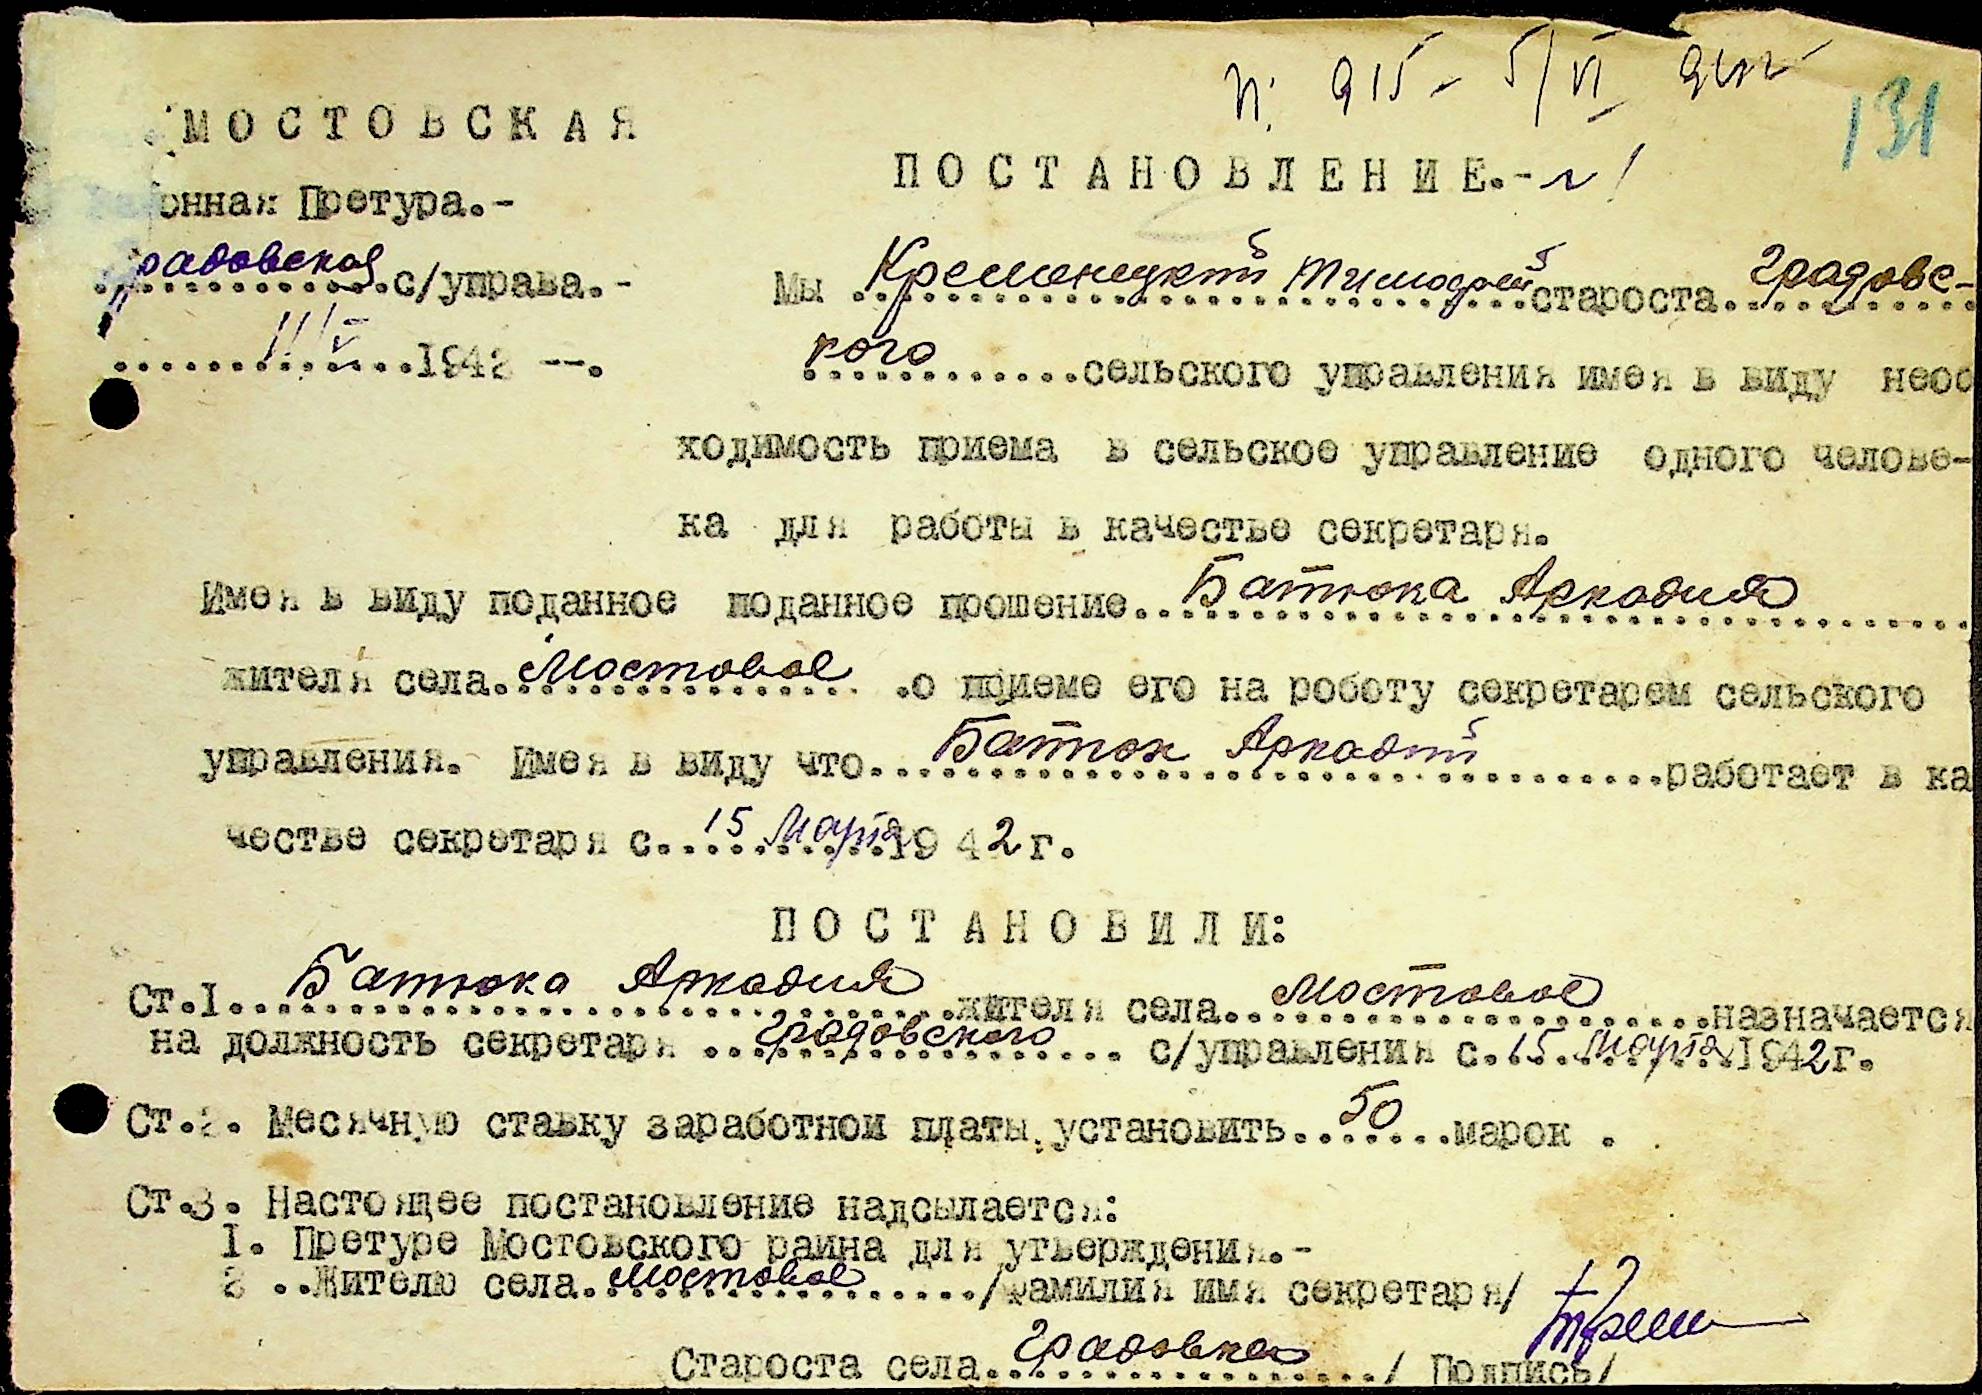 N: 915 - 5/VI 942 г
131
МОСТОВСКАЯ
ПОСТАНОВЛЕНИЕ.-
онная Претура.-
радовская с/управа.-
Мы Кременецкий Тимофей староста Градовс-
11/V 1942 --.
кого сельского управления имея в виду необ
ходимость приема в сельское управление одного челове-
ка для работы в качестве секретаря.
Имея в виду поданное поданное прошение Батюка Аркадия
жителя села Мостовое о приеме его на роботу секретарем сельского
управления. Имея в виду что Батюк Аркадий работает в ка
честве секретаря с 15 Марта 1942 г.
ПОСТАНОВИЛИ:
Ст.I Батюка Аркадия жителя села Мостовое назначается
на должность секретаря Градовского с/управления с 15 Марта 1942г.
Ст.2. Месячную ставку заработнои платы установить 50 марок .
Ст.3. Настоящее постановление надсылается:
I. Претуре Мостовского раина для утверждения.-
2 ..Жителю села Мостовое /фамилия имя секретаря/
Староста села Градовка / Подпись/